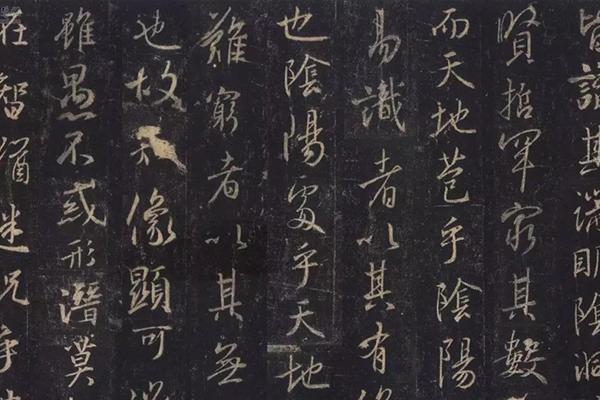 皆識其端明陰洞
賢哲罕窮其數
而天地苞乎陰陽
易識者以其有
也陰陽處乎天地
難窮者以其無
也故像顯可
雖愚不惑形潛莫
在智猶迷況乎